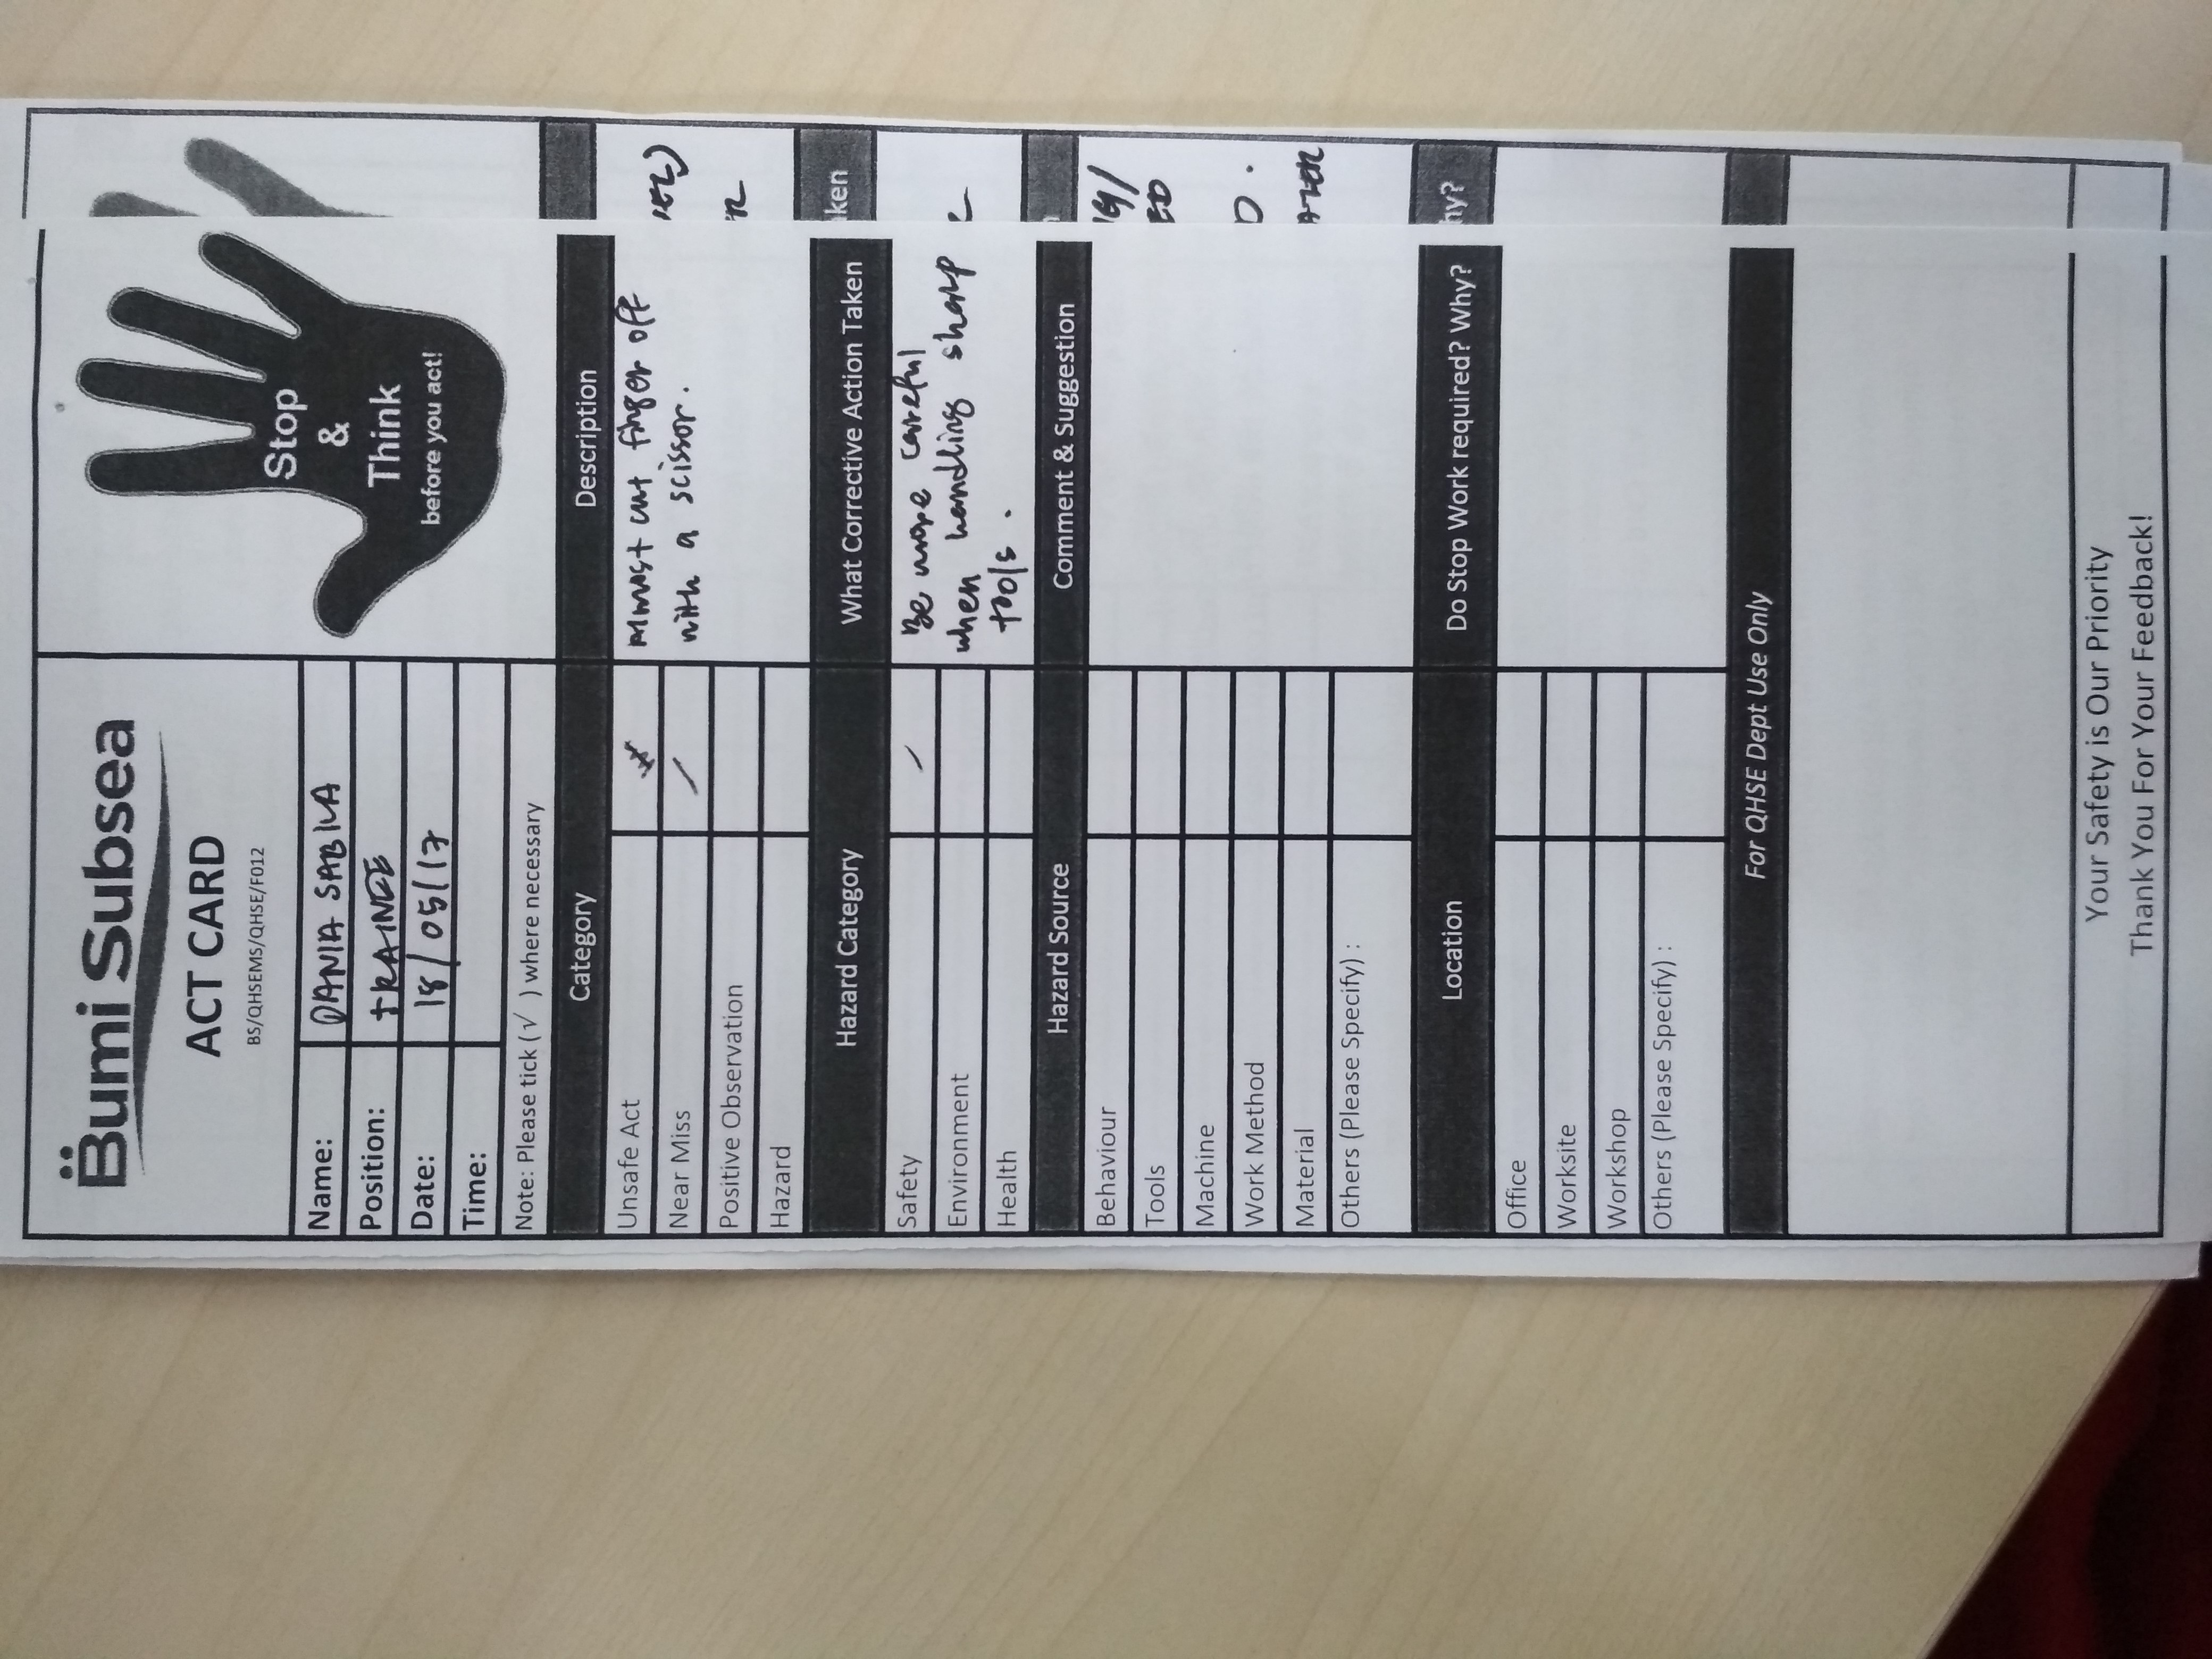 Bumi Subsea
ACT CARD
BS/QHSEMS/QHSE/F012
Stop
&
Think
before you act!
Name: DANIA SABILA
Position: TRAINEE
Date: 18/05/17
Time:
Note: Please tick (√ ) where necessary
Category Description
Unsafe Act Almost cut finger off
Near Miss / with a scissor.
Positive Observation
Hazard
Hazard Category What Corrective Action Taken
Safety / Be more careful
Environment when handling sharp
Health tools.
Hazard Source Comment & Suggestion
Behaviour
Tools
Machine
Work Method
Material
Others (Please Specify) :
Location Do Stop Work required? Why?
Office
Worksite
Workshop
Others (Please Specify) :
For QHSE Dept Use Only
Your Safety is Our Priority
Thank You For Your Feedback!